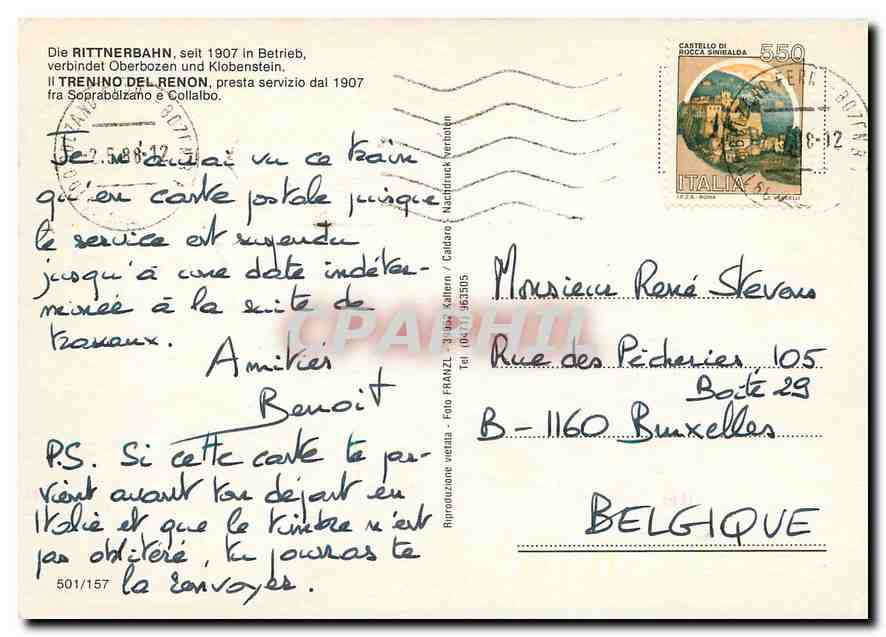 Die RITTNERBAHN, seit 1907 in Betrieb,
verbindet Oberbozen und Klobenstein.
Il TRENINO DEL RENON, presta servizio dal 1907
fra Soprabolzano e Collalbo.
CASTELLO DI
ROCCA SINIBALDA
550
ITALIA
I.P.Z.S. - ROMA
2.5.88-12
BOZEN
8-12
Je n'aurai vu ce train
qu'en carte postale puisque
le service est suspendu
jusqu'à une date indéter-
minée à la suite de
travaux.
Amitiés
Benoit
P.S. Si cette carte te par-
vient avant ton départ en
Italie et que le timbre n'est
pas oblitéré, tu pourras te
la renvoyer.
501/157
Riproduzione vietata - Foto FRANZL - 39052 Kaltern / Caldaro - Nachdruck verboten
Tel. (0471) 963505
Monsieur René Stevens
Rue des Pêcheries 105
Boîte 29
B-1160 Bruxelles
BELGIQUE
CPAPHIL